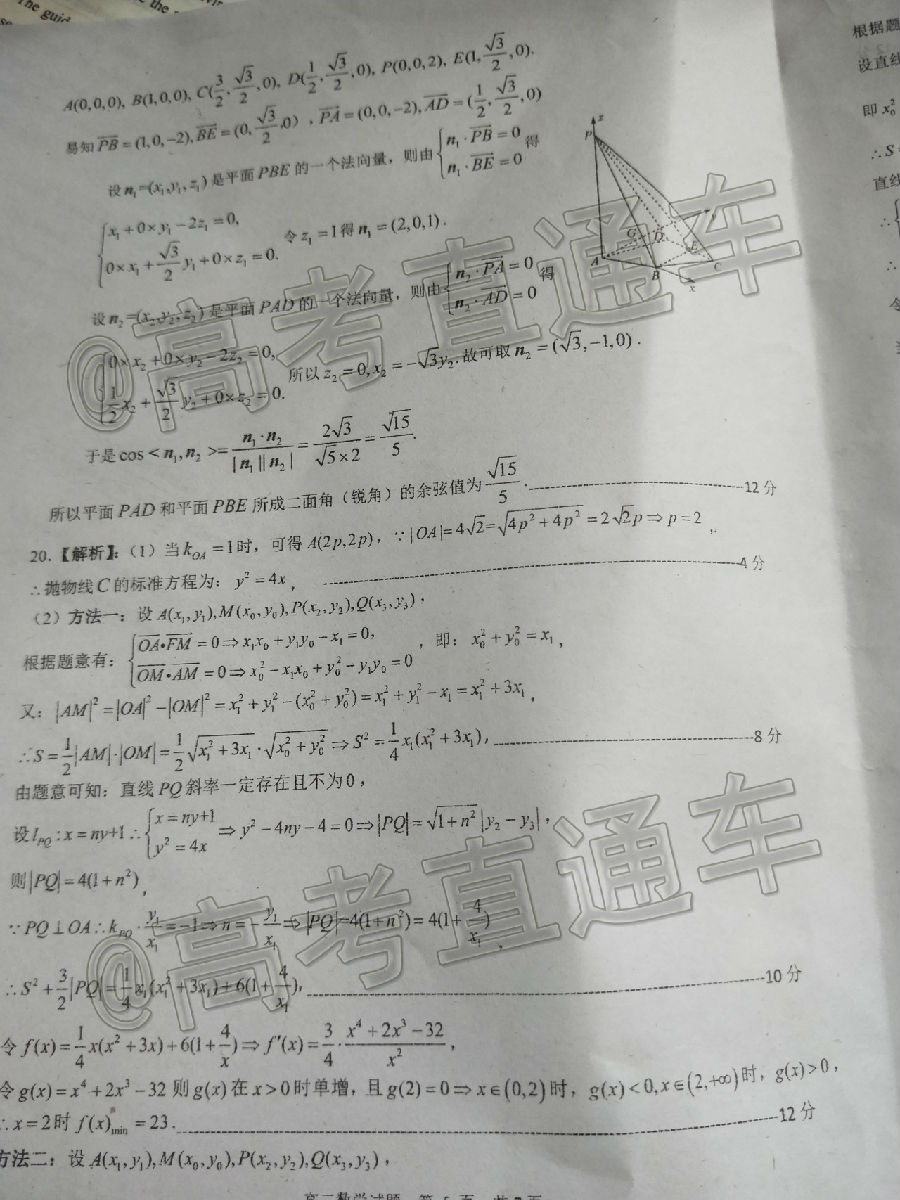 The guid
the
A(0,0,0), B(1,0,0), C(3/2, √3/2, 0), D(1/2, √3/2, 0), P(0,0,2), E(1, √3/2, 0).
易知PB=(1,0,−2), BE=(0, √3/2, 0), PA=(0,0,−2), AD=(1/2, √3/2, 0)
设n₁=(x₁,y₁,z₁)是平面PBE的一个法向量，则由{n₁·PB=0 n₁·BE=0 得
{x₁+0×y₁−2z₁=0, 0×x₁+√3/2 y₁+0×z₁=0. 令z₁=1得n₁=(2,0,1).
设n₂=(x₂,y₂,z₂)是平面PAD的一个法向量，则由{n₂·PA=0 n₂·AD=0 得
{0×x₂+0×y₂−2z₂=0, 1/2 x₂+√3/2 y₂+0×z₂=0. 所以z₂=0,x₂=−√3y₂.故可取n₂=(√3,−1,0).
于是cos<n₁,n₂>=n₁·n₂/|n₁||n₂|=2√3/√5×2=√15/5.
所以平面PAD和平面PBE所成二面角（锐角）的余弦值为√15/5.12分
20.【解析】：（1）当k_OA=1时，可得A(2p,2p)，∵|OA|=4√2=√4p²+4p²=2√2p⇒p=2，
∴抛物线C的标准方程为：y²=4x，4分
（2）方法一：设A(x₁,y₁),M(x₀,y₀),P(x₂,y₂),Q(x₃,y₃)，
根据题意有：{OA•FM=0⇒x₁x₀+y₁y₀−x₁=0, OM•AM=0⇒x₀²−x₁x₀+y₀²−y₁y₀=0，即：x₀²+y₀²=x₁，
又：|AM|²=|OA|²−|OM|²=x₁²+y₁²−(x₀²+y₀²)=x₁²+y₁²−x₁=x₁²+3x₁，
∴S=1/2|AM|·|OM|=1/2√x₁²+3x₁·√x₀²+y₀²⇒S²=1/4x₁(x₁²+3x₁)，8分
由题意可知：直线PQ斜率一定存在且不为0，
设l_PQ:x=ny+1∴{x=ny+1 y²=4x ⇒y²−4ny−4=0⇒|PQ|=√1+n²|y₂−y₃|，
则|PQ|=4(1+n²)，
∵PQ⊥OA∴k_PQ·y₁/x₁=−1⇒n=−y₁/x₁⇒|PQ|=4(1+n²)=4(1+4/x₁)，
∴S²+3/2|PQ|=1/4x₁(x₁²+3x₁)+6(1+4/x₁)，10分
令f(x)=1/4x(x²+3x)+6(1+4/x)⇒f′(x)=3/4·x⁴+2x³−32/x²，
令g(x)=x⁴+2x³−32则g(x)在x>0时单增，且g(2)=0⇒x∈(0,2)时，g(x)<0,x∈(2,+∞)时，g(x)>0，
∴x=2时f(x)min=23.12分
方法二：设A(x₁,y₁),M(x₀,y₀),P(x₂,y₂),Q(x₃,y₃)，
z
P
G
D
A
B
E
C
x
y
@高考直通车
@高考直通车
根据题
设直线
即x₀²
∴S=
直线
∴
令